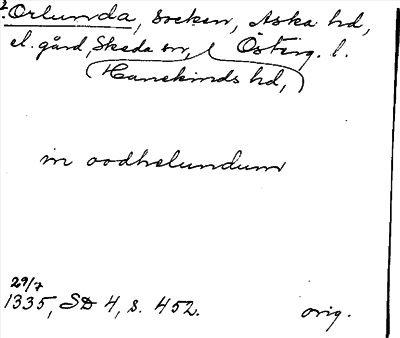 Orlunda, socken, Aska hd,
el. gård, Skeda sn, Österg. l.
(Hanekinds hd,)
in oodhelundum
29/7
1335, SD 4, s. 452. orig.